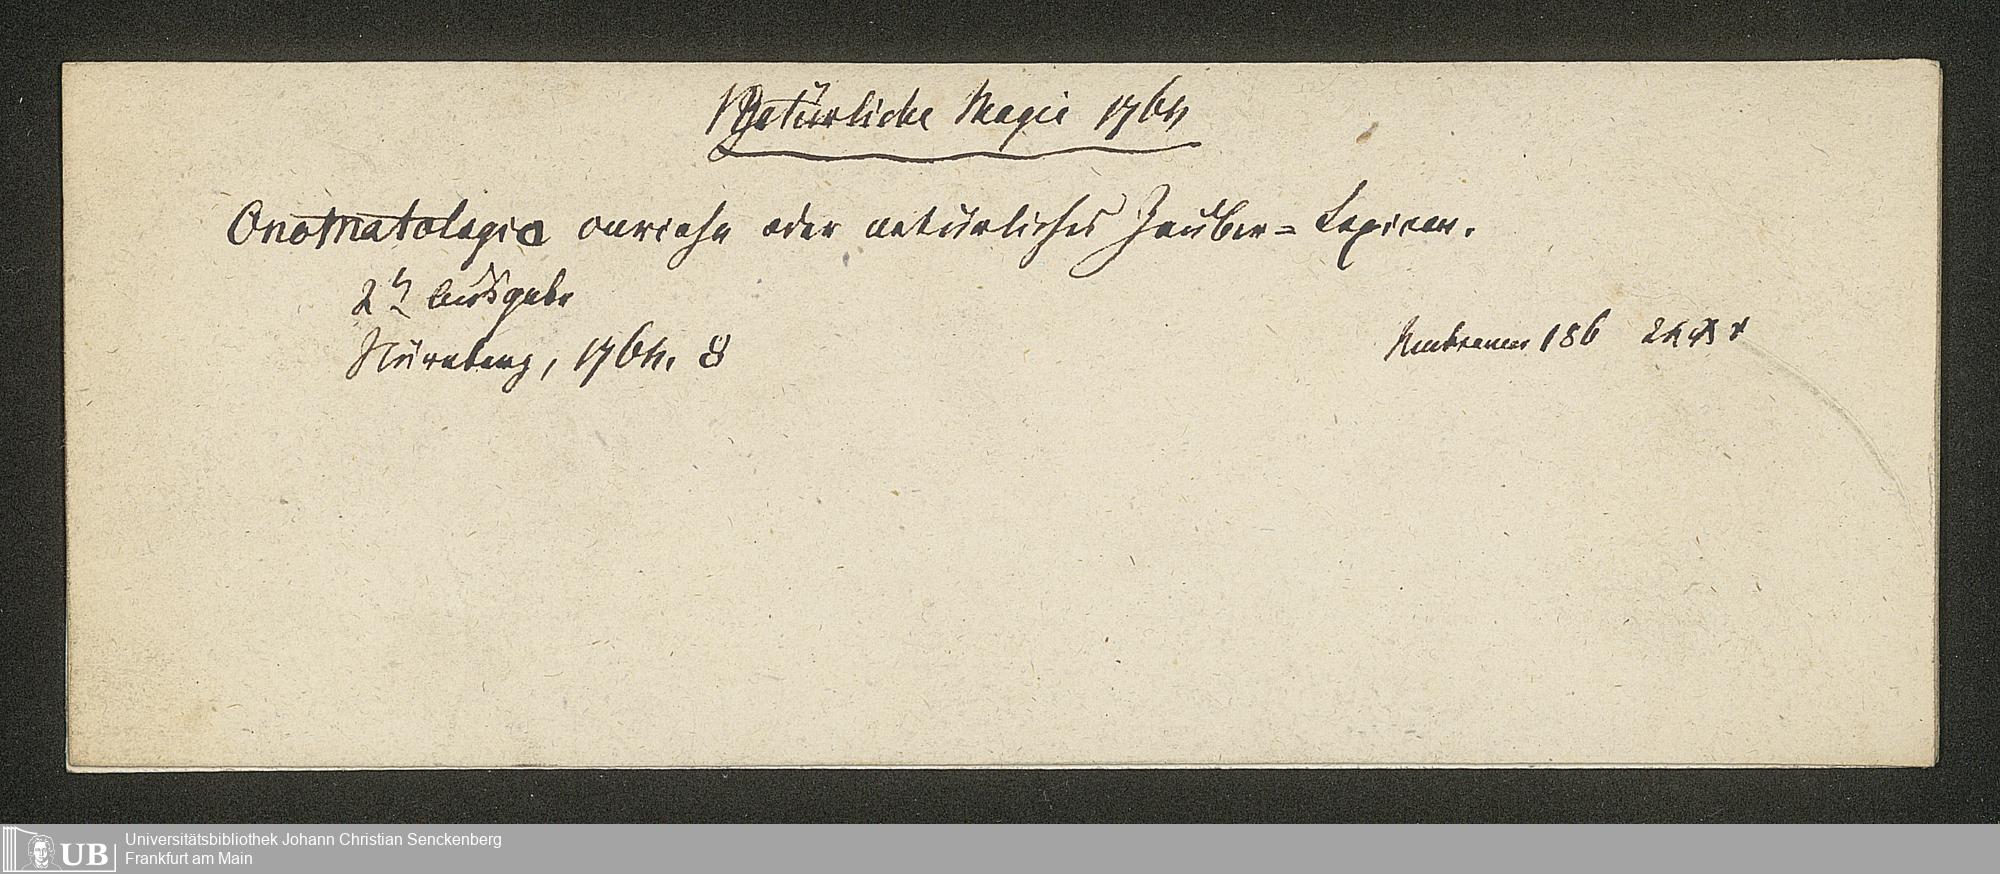 Natürliche Magie 1764
Onomatologia curiosa oder natürliches Zauber= Lexicon.
2te Ausgabe
Nürnberg, 1764. 8
186 24
UB
Universitätsbibliothek Johann Christian Senckenberg
Frankfurt am Main